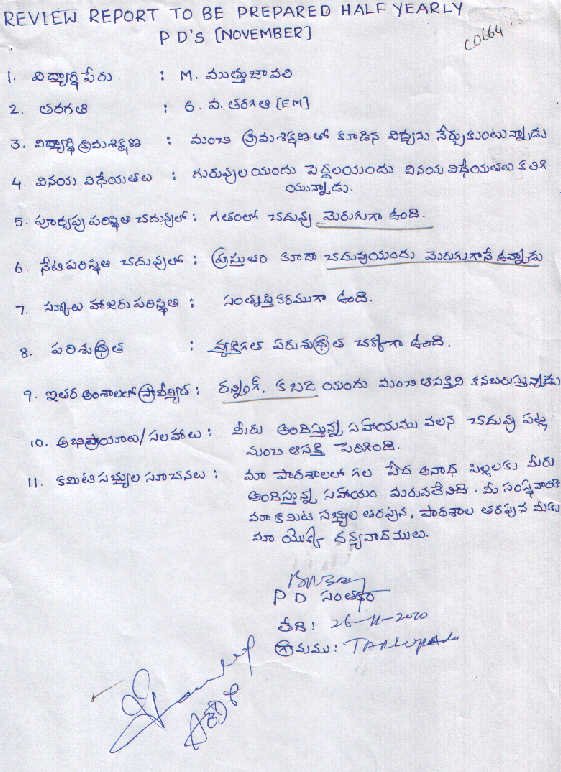 REVIEW REPORT TO BE PREPARED HALF YEARLY
P D'S [NOVEMBER]
C0664
1. విద్యార్థి పేరు : M. ముత్తుజావలి
2. తరగతి : 6. వ. తరగతి (EM)
3. విద్యార్థి క్రమశిక్షణ : మంచి క్రమశిక్షణతో కూడిన విద్యను నేర్చుకుంటున్నాడు
4. వినయ విధేయతలు : గురువుల యందు పెద్దలయందు వినయ విధేయతలు కలిగి
యున్నాడు.
5. పూర్వపు పరిస్థితి చదువులో : గతంలో చదువు మెరుగుగా ఉంది.
6. నేటి పరిస్థితి చదువులో : ప్రస్తుతం కూడా చదువుయందు మెరుగుగానే ఉన్నాడు
7. స్కూలు హాజరు పరిస్థితి : సంతృప్తికరముగా ఉంది.
8. పరిశుభ్రత : వ్యక్తిగత పరిశుభ్రత చక్కగా ఉంది.
9. ఇతర అంశాలలో ప్రావీణ్యత : రన్నింగ్, కబడి యందు మంచి ఆసక్తిని కనబరుస్తున్నాడు
10. అభిప్రాయాలు/సలహాలు : మీరు అందిస్తున్న సహాయము వలన చదువు పట్ల
మంచి ఆసక్తి పెరిగింది.
11. కమిటి సభ్యుల సూచనలు : మా పాఠశాలలో గల పేద అనాధ పిల్లలకు మీరు
అందిస్తున్న సహాయం మరువలేనిది. మీ సంస్థవారికి
మా కమిటి సభ్యుల తరపున, పాఠశాల తరపున మీకు
మా యొక్క ధన్యవాదములు.
P D సంతకం
తేది : 26-11-2020
గ్రామము :